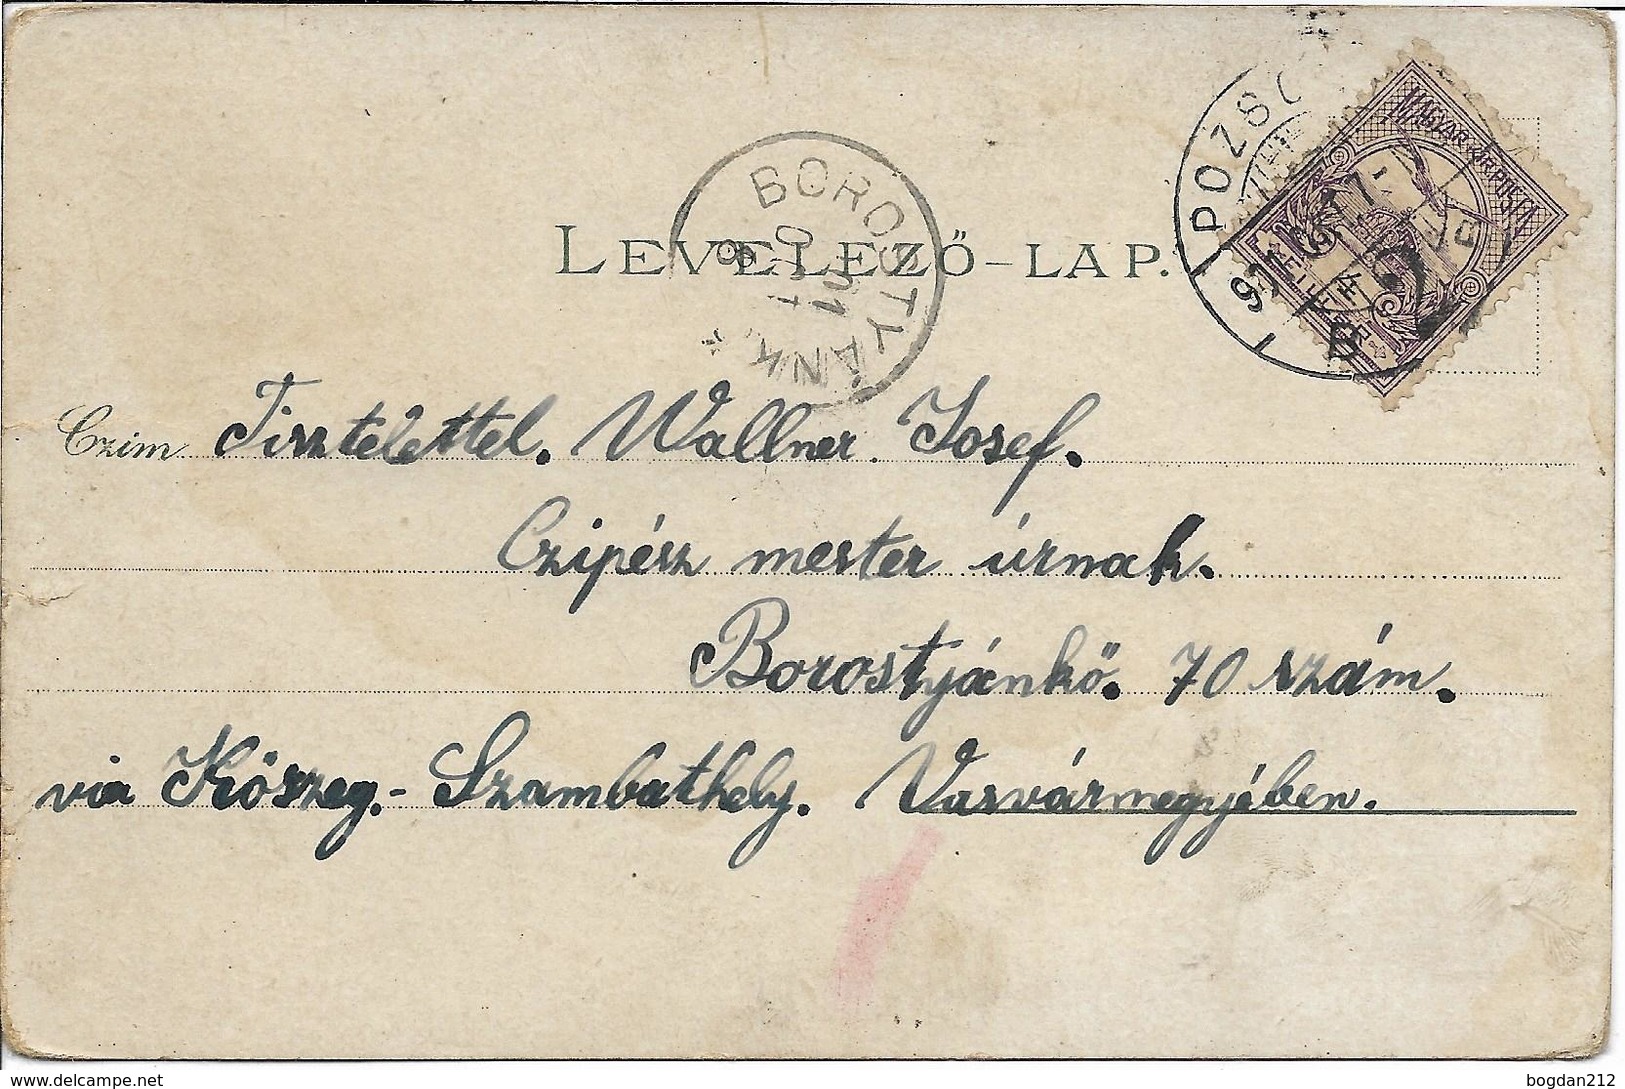 LEVELEZŐ-LAP.
BOROSTYÁNK *
POZSO
MAGYAR KIR. POSTA
Czim Tisztelettel. Wallner Josef.
Czipész mester úrnak.
Borostjánkő. 70 szám.
via Kőszeg.- Szambathely. Vasvármegyében.
delcampe.net
bogdan212